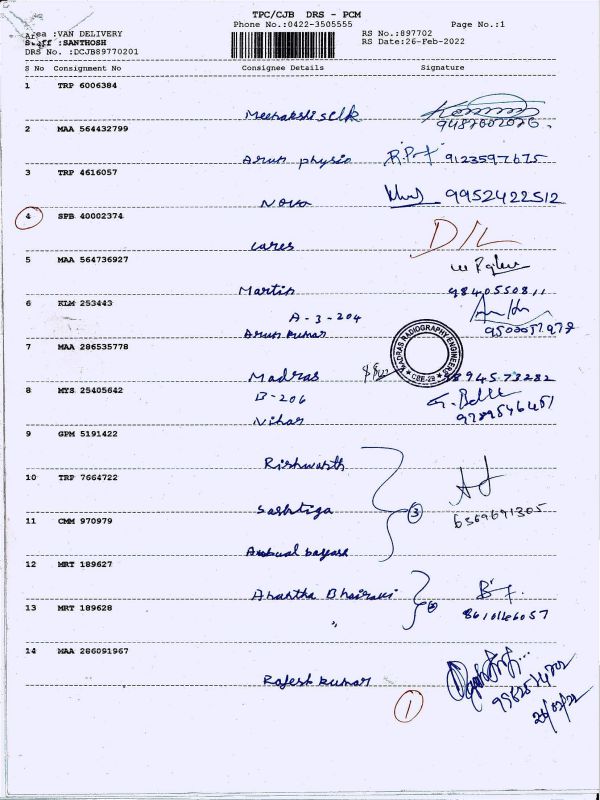 TPC/CJB DRS - PCM
Phone No.:0422-3505555 Page No.:1
Area :VAN DELIVERY RS No.:897702
Staff :SANTHOSH RS Date:26-Feb-2022
DRS No. :DCJB89770201
S No Consignment No Consignee Details Signature
1 TRP 6006384
Meenakshi silk
2 MAA 564432799
Arun physio R.P 9123597675
3 TRP 4616057
Nova 9952422512
4 SPB 40002374
cares D/L
5 MAA 564736927
Martin 9840550811
6 KLM 253443
A-3-204
Arun kumar
7 MAA 286535778
MADRAS RADIOGRAPHY ENGINEERS
CBE-28
Madras 98945 73282
8 MYS 25405642
B-206
Vihar
9 GPM 5191422
Rishwanth
10 TRP 7664722
Sashtiga 3 6369691305
11 CMM 970979
12 MRT 189627
Anantha Bhairavi
13 MRT 189628
"
14 MAA 286091967
Rajesh kumar
1
26/02/22